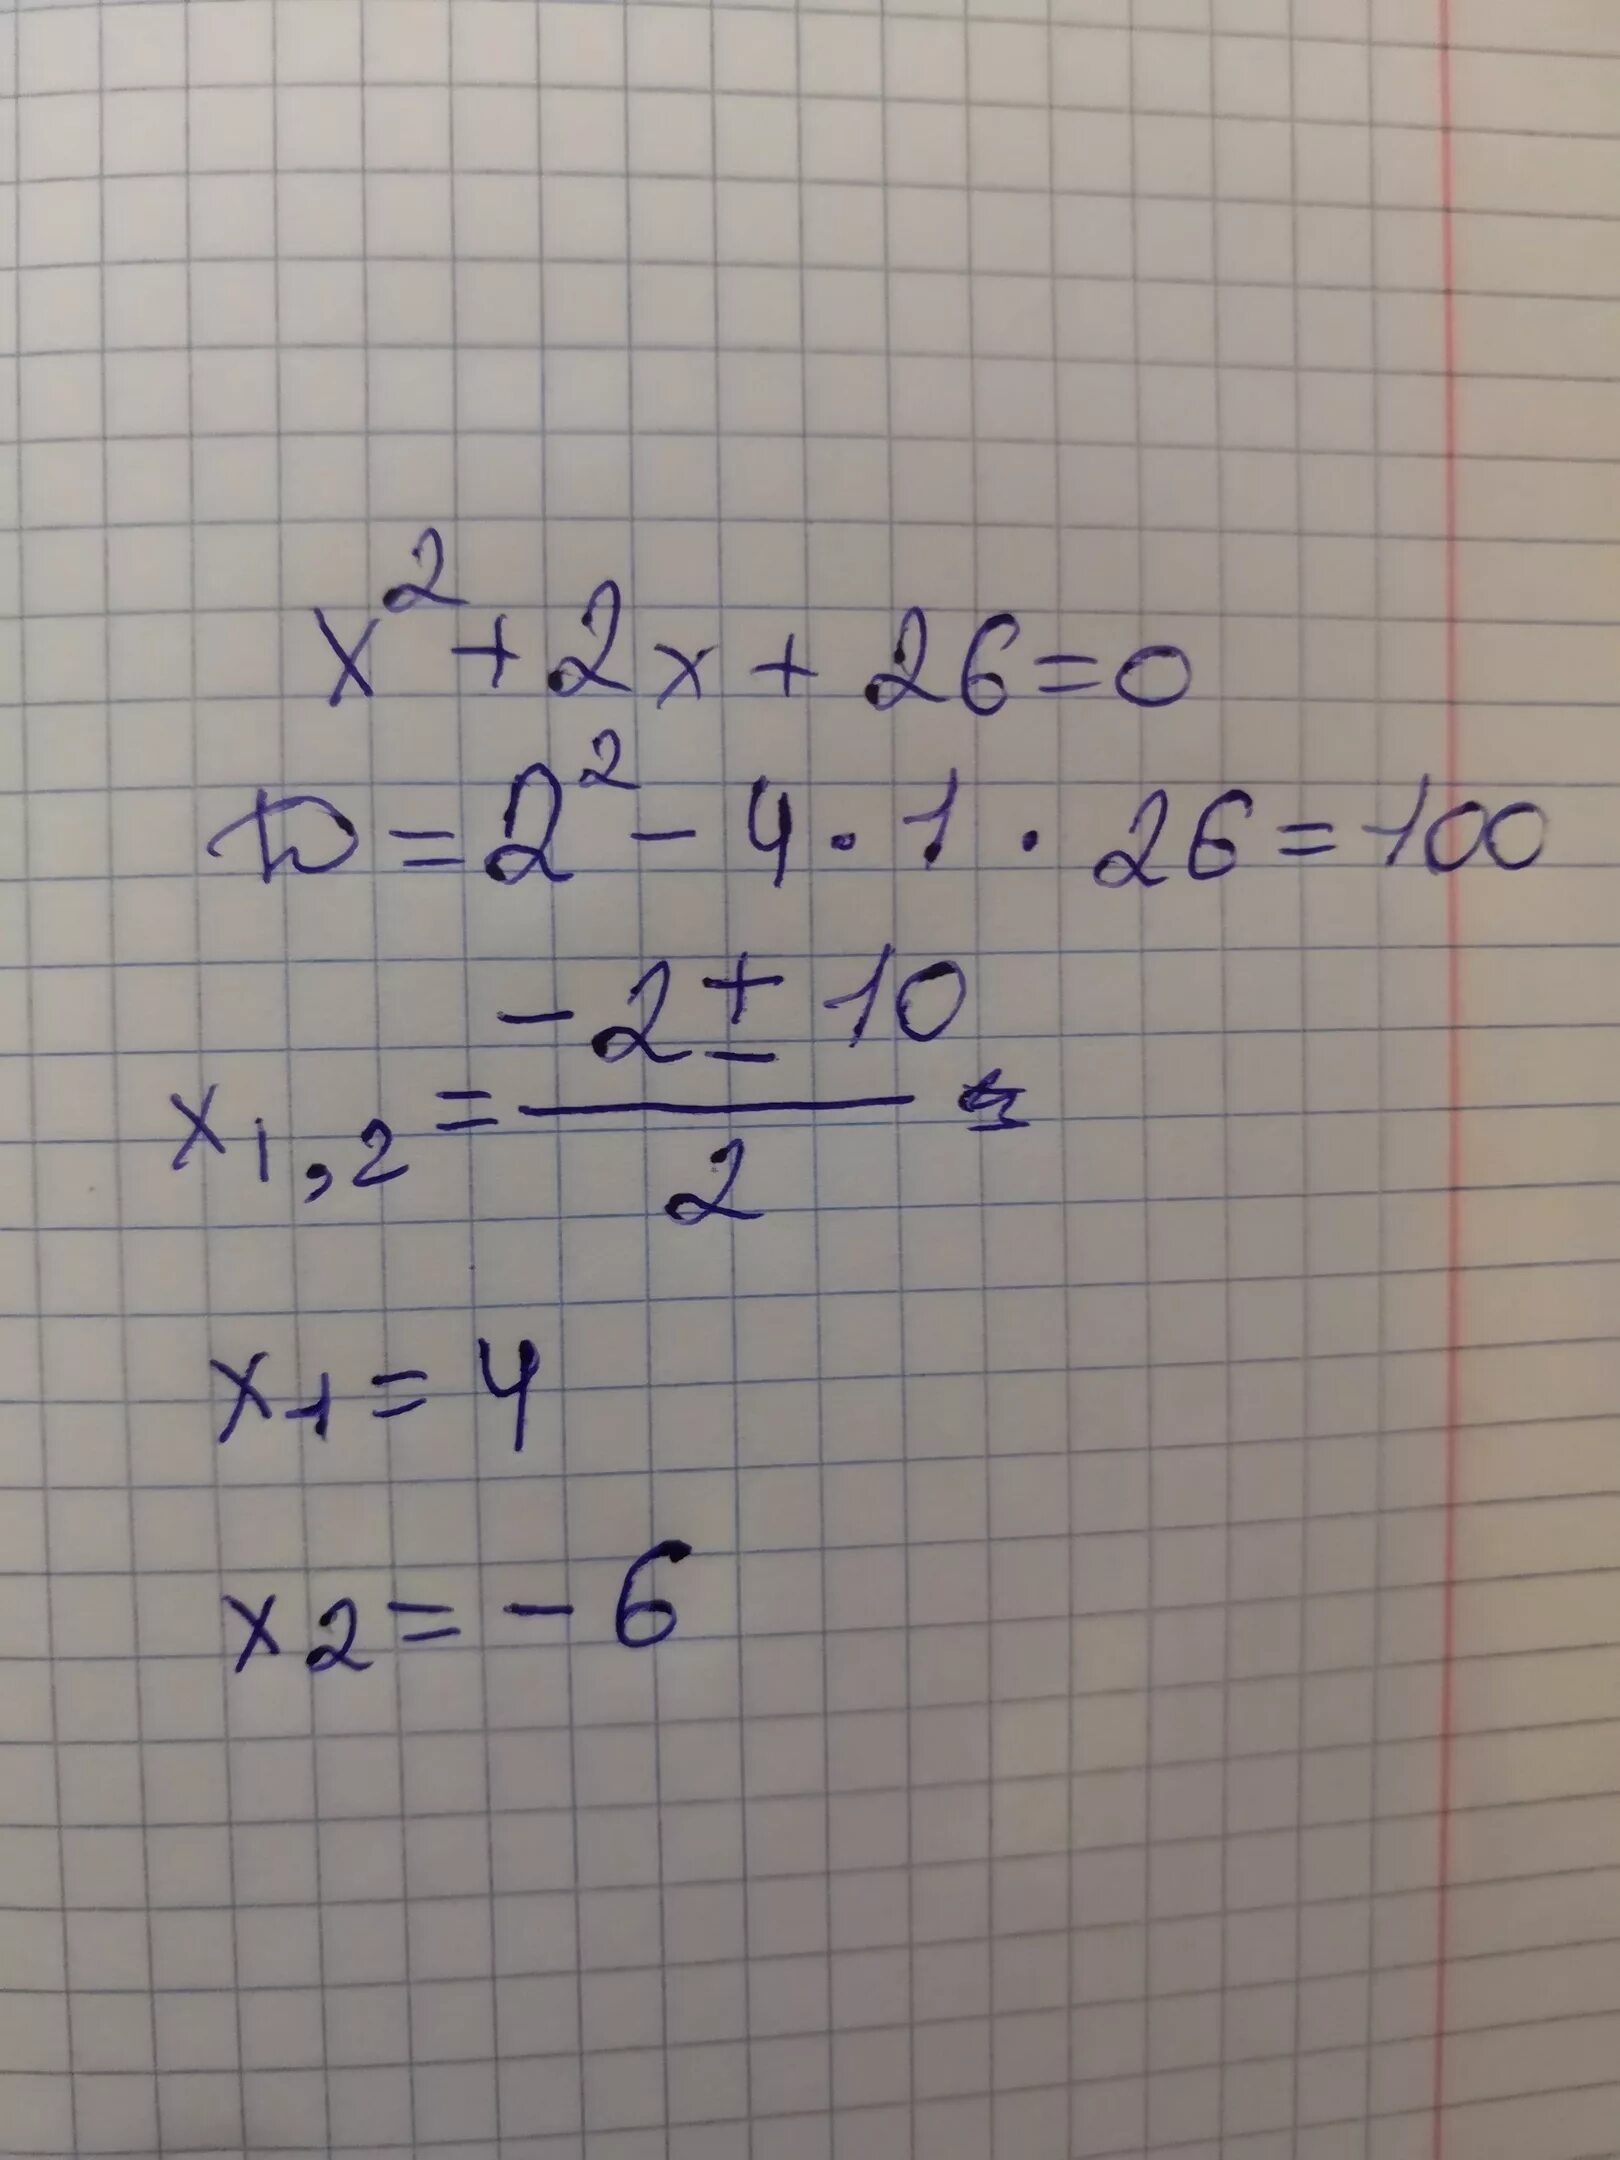 x² + 2x + 26 = 0
D = 2² - 4 · 1 · 26 = 100
x₁,₂ = (-2 ± 10) / 2 =
x₁ = 4
x₂ = -6